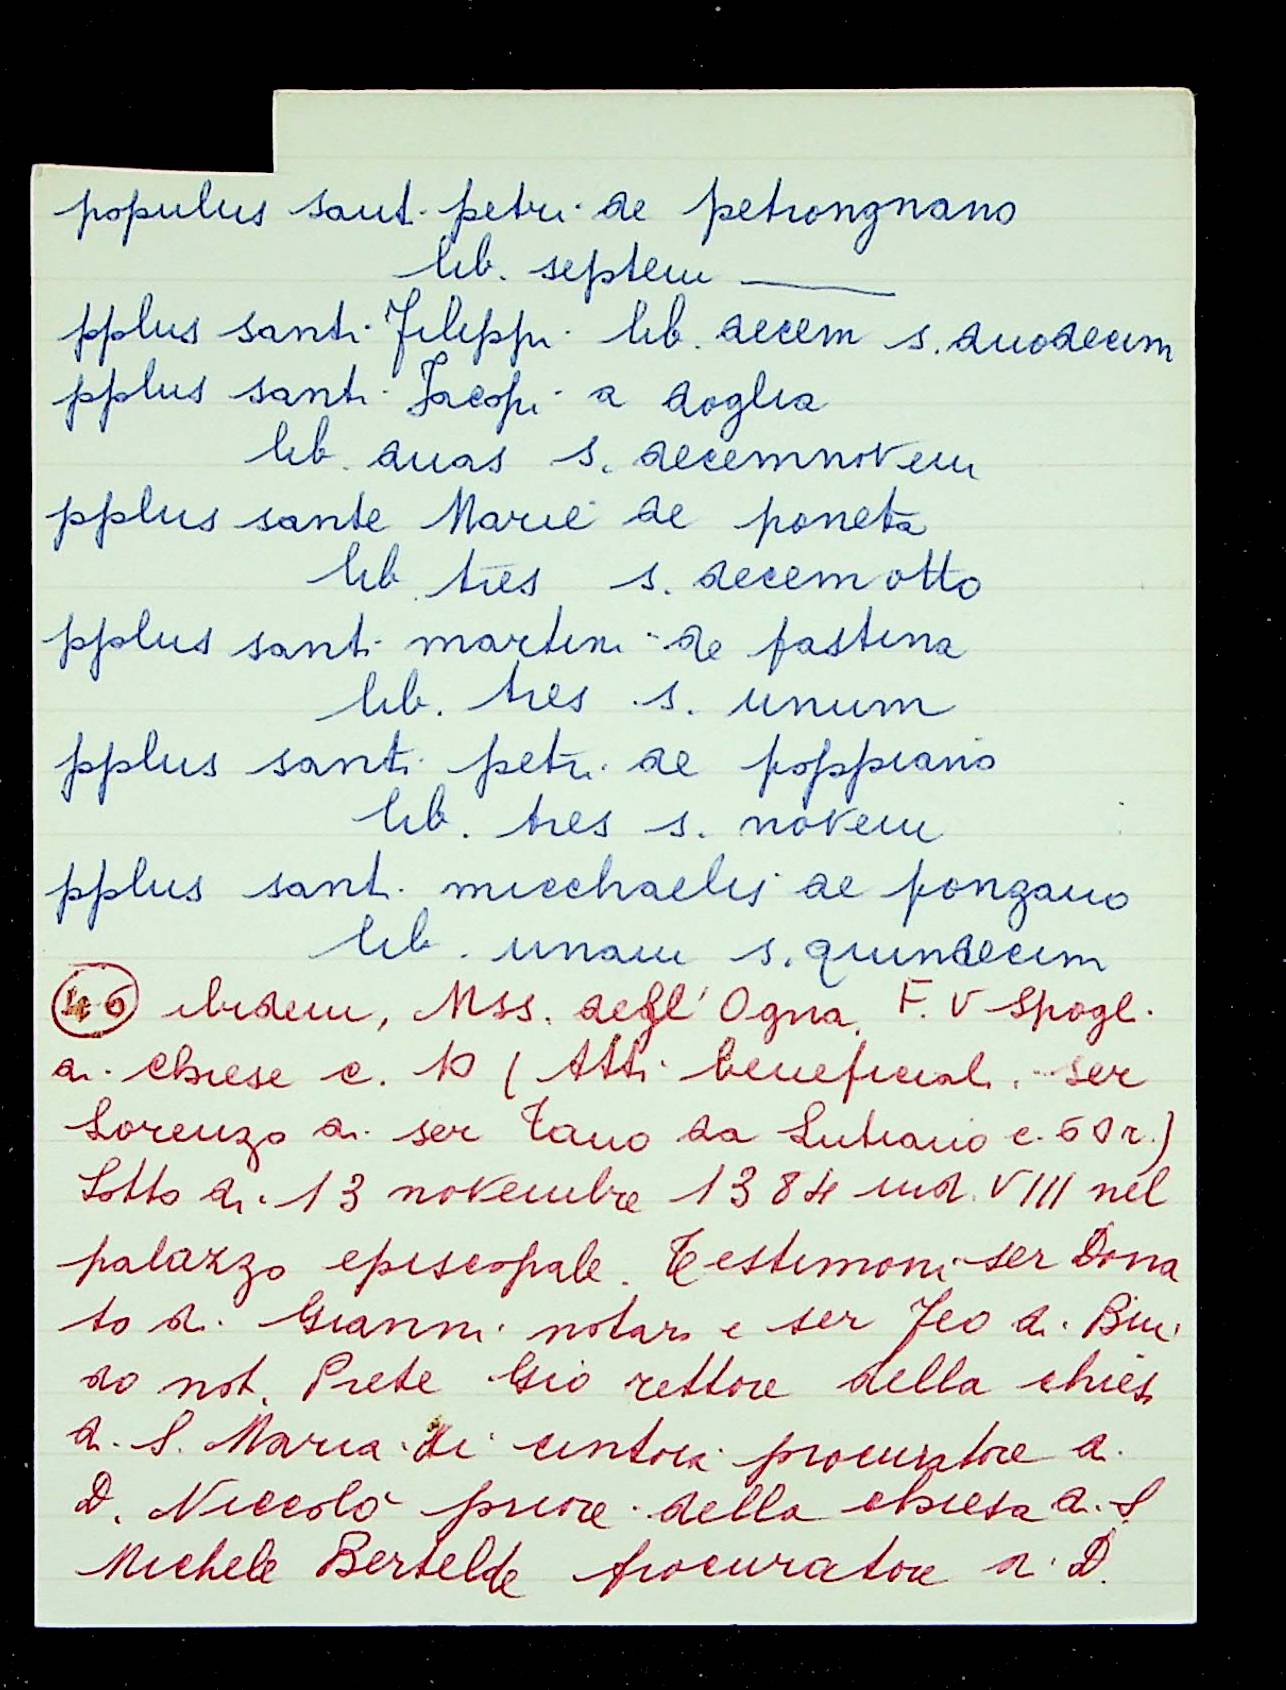 populus sant. petri de petrongnano
lib. septem
pplus santi Filippi lib. decem s. duodecim
pplus santi Jacopi a doglia
lib. duas s. decemnovem
pplus sante Marie de poneta
lib. tres s. decem otto
pplus santi martini de fastina
lib. tres s. unum
pplus santi petri de poppiano
lib. tres s. novem
pplus sant. micchaelis de ponzano
lib. unam s. quindecim
46 ibidem, Mss. dell' Ogna. F. V Spogl.
di chiese c. 10 (Atti beneficiali. ser
Lorenzo di ser Tano da Lutiano c. 60 r.)
Sotto di 13 novembre 1384 ind. VIII nel
palazzo episcopale. Testimoni ser Dona
to di Gianni notaro e ser Feo di Bin
do not. Prete Gio rettore della chies
di S. Maria di cintoia procuratore di
D. Niccolò priore della chiesa di S.
Michele Bertelde procuratore di D.